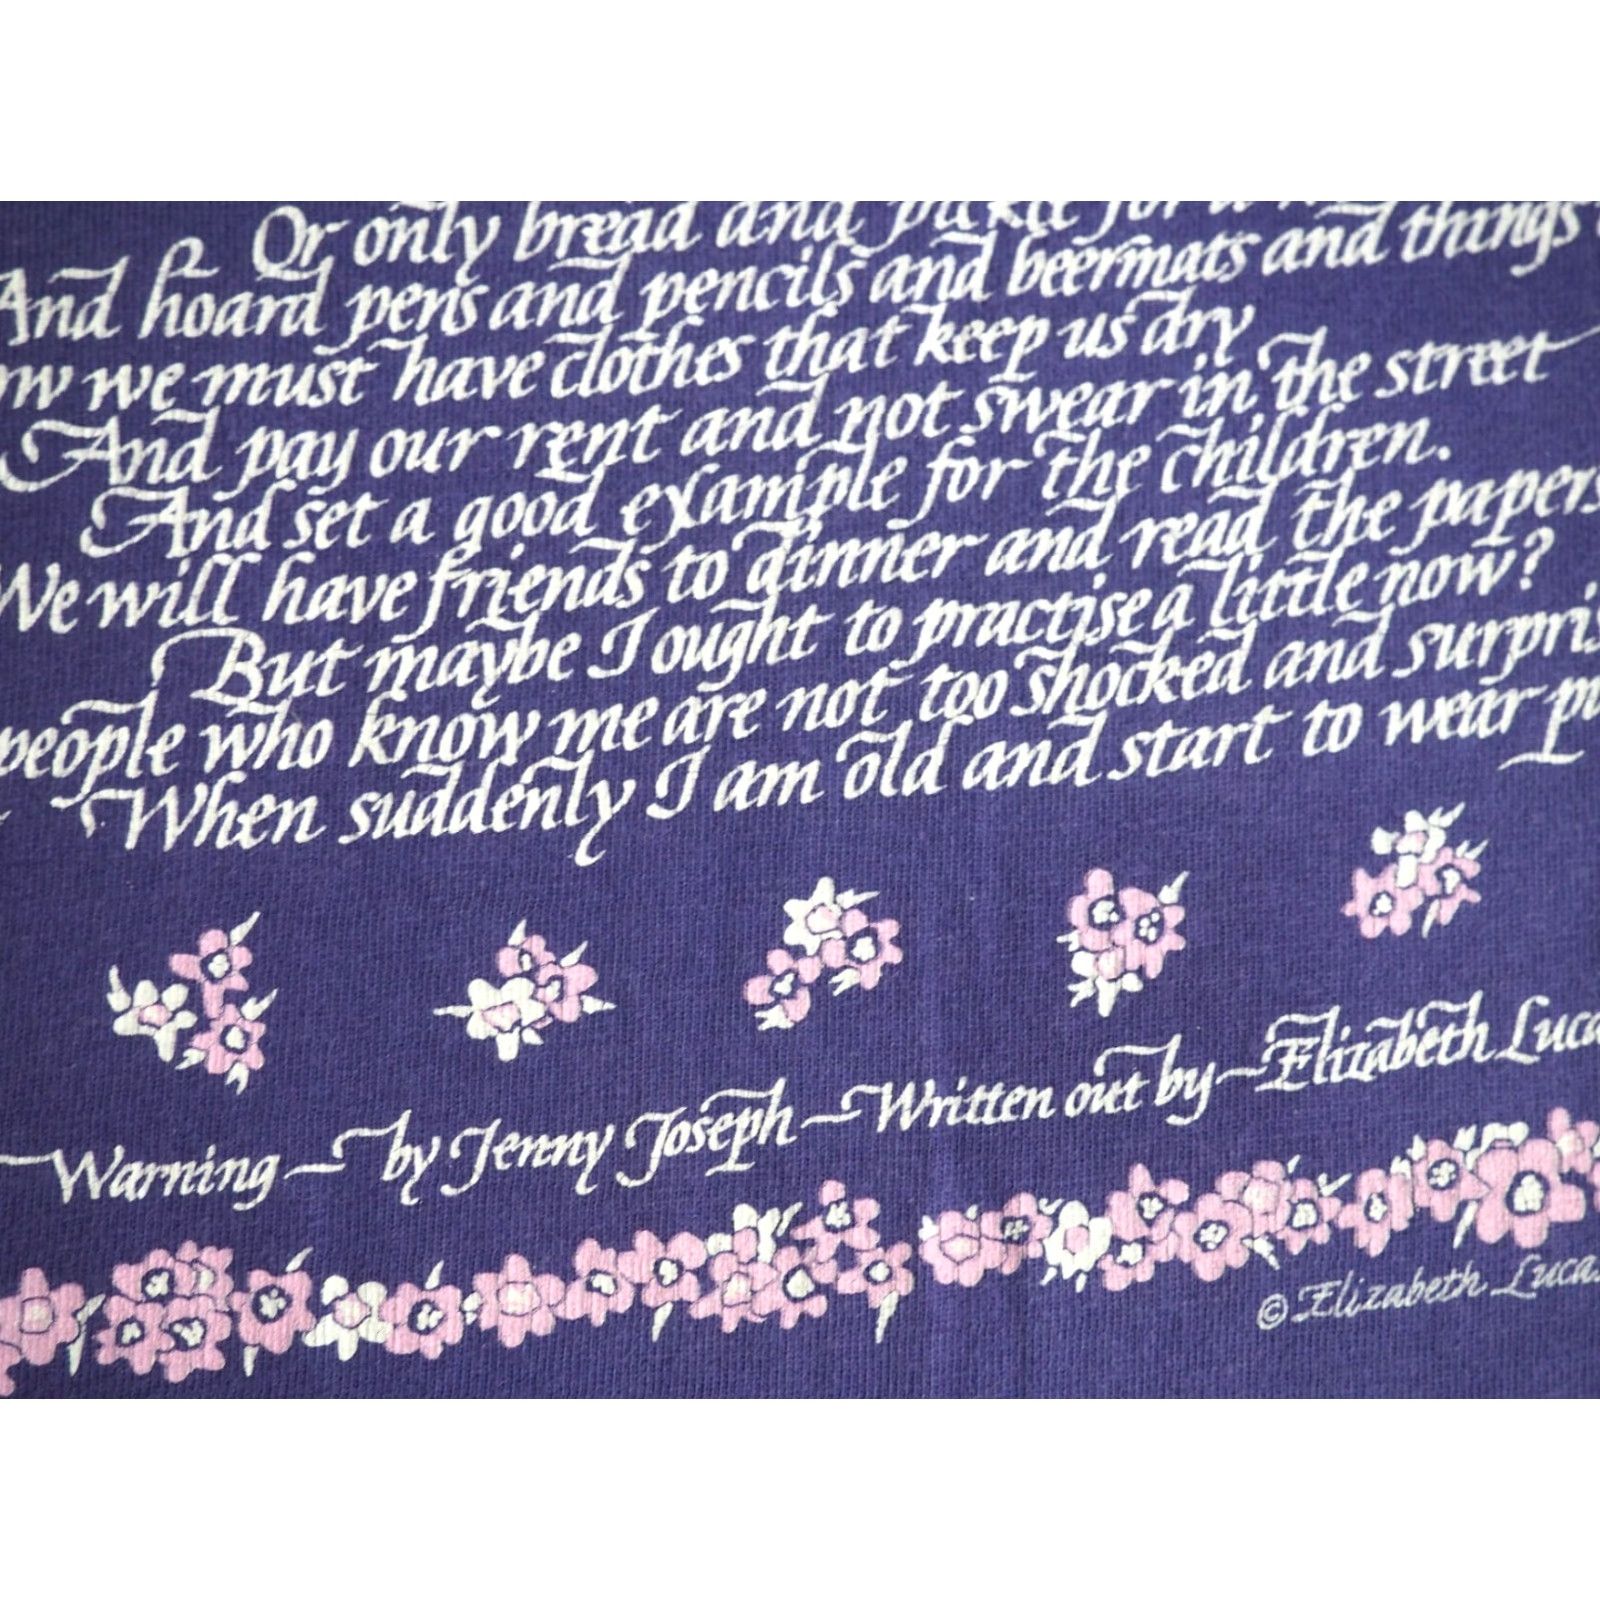 Or only bread and pickle for a
And hoard pens and pencils and beermats and things
we must have clothes that keep us dry
And pay our rent and not swear in the street
And set a good example for the children.
We will have friends to dinner and read the papers
But maybe I ought to practise a little now?
people who know me are not too shocked and
When suddenly I am old and start to wear
Warning – by Jenny Joseph – Written out by – Elizabeth Lucas
© Elizabeth Lucas